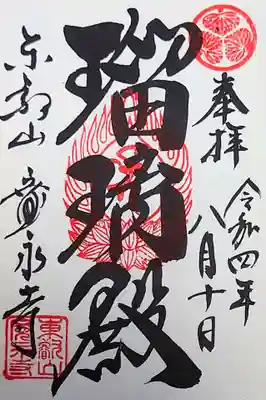 奉拝
令和四年
八月十日
瑠璃殿
東叡山
寛永寺
東叡山
寛永寺